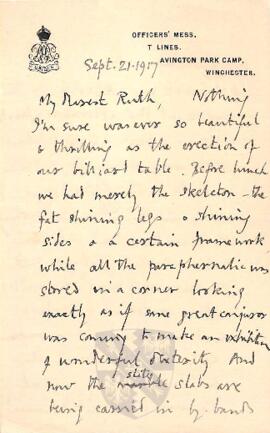 OFFICERS' MESS,
T LINES,
AVINGTON PARK CAMP,
WINCHESTER.
Sept. 21. 1917
My Dearest Ruth, Nothing
I'm sure was ever so beautiful
& thrilling as the erection of
our billiard table. Before lunch
we had merely the skeleton - the
fat shining legs & shining
sides & a certain framework,
while all the paraphernalia was
stored in a corner looking
exactly as if some great conjuror
was coming to make an exhibition
of wonderful dexterity. And
slity
now the marble slabs are
being carried in by bands